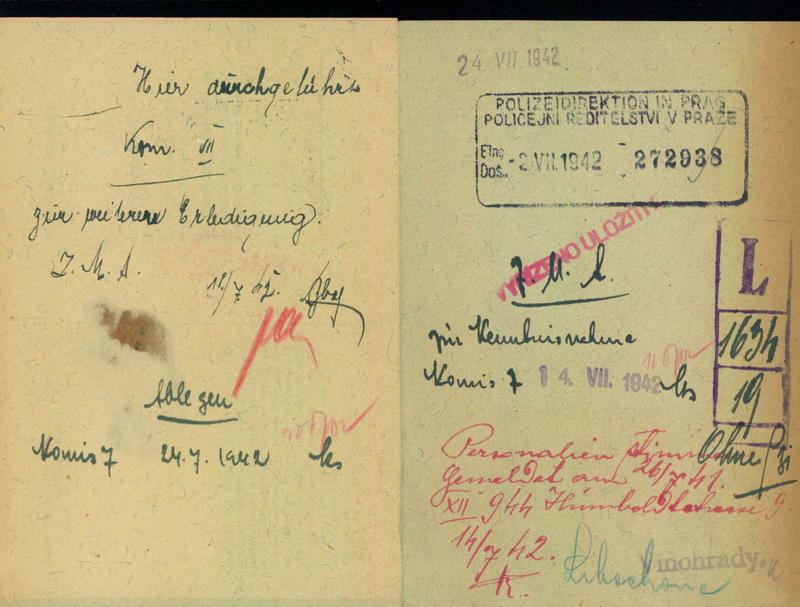 Hier durchgeführt
Kom. VII
zur weiteren Erledigung.
J. M. A.
Ablegen
Komis 7 24.7.1942 ks
24 VII. 1942
POLIZEIDIREKTION IN PRAG
POLICEJNÍ ŘEDITELSTVÍ V PRAZE
Eing.
Doš. -2. VII. 1942 272938
VYŘÍZENO ULOŽITI
J. M. A.
zur Kenntnisnahme
Komis 7 14. VII. 1942 ks
L
1634
19
Ohne
Personalien stimmen
gemeldet am 26/7 41.
XII 944 Humboldtstrasse 9.
14/7 42.
Vinohrady